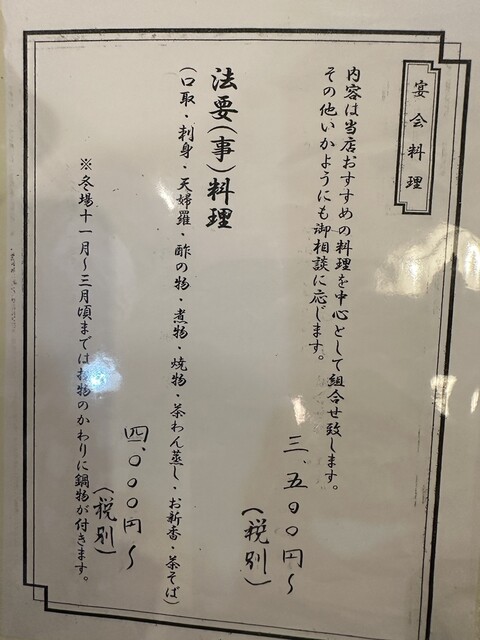 宴会料理
内容は当店おすすめの料理を中心として組合せ致します。
その他いかようにも御相談に応じます。
三、五〇〇円~
(税別)
法要(事)料理
(口取・刺身・天婦羅・酢の物・煮物・焼物・茶わん蒸し・お新香・茶そば)
四、〇〇〇円~
(税別)
※冬場十一月~三月頃までは 物のかわりに鍋物が付きます。